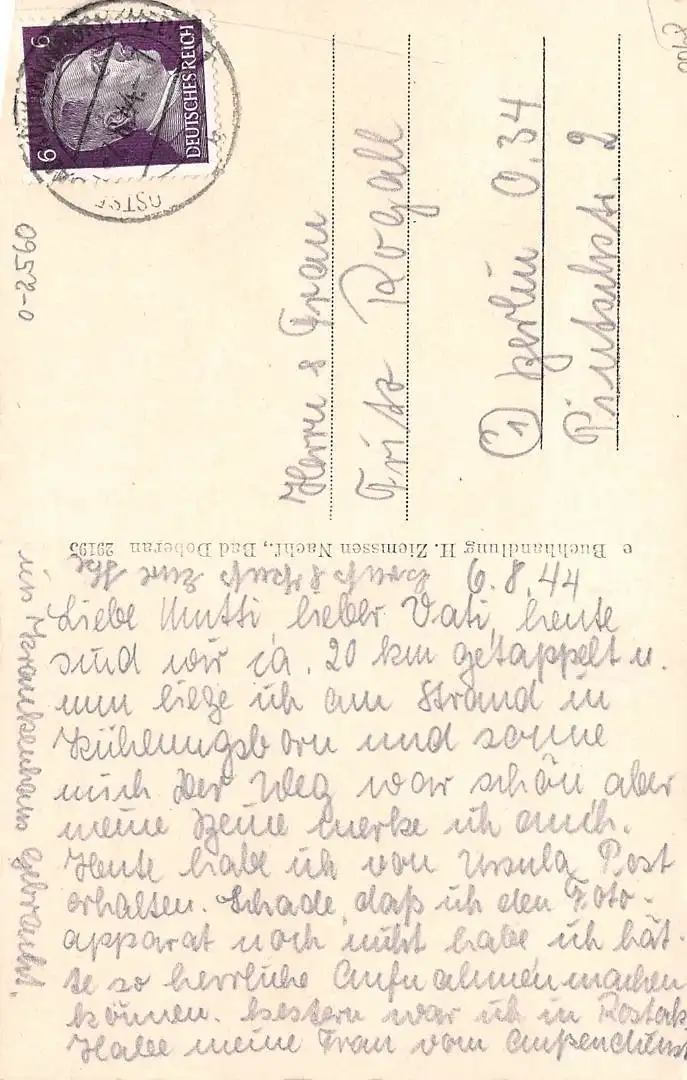 6
6
DEUTSCHES REICH
OSTSE
0-2560
Herrn & Frau
Fritz Rogall
(1) Berlin O.34
Pintschstr. 2
Buchhandlung H. Ziemssen Nachf., Bad Doberan 29195
6.8.44
Liebe Mutti, lieber Vati, heute
sind wir ca. 20 km getappelt u.
nun liege ich am Strand in
Kühlungsborn und sonne
mich Der Weg war schön aber
meine Beine merke ich auch.
Heute habe ich von Ursula Post
erhalten. Schade, daß ich den Foto-
apparat noch nicht habe, ich hät-
te so herrliche Aufnahmen machen
können. Gestern war ich in Rostock
Habe meine Frau vom Außendienst
ins Krankenhaus gebracht.
Gruß & Kuß Eure